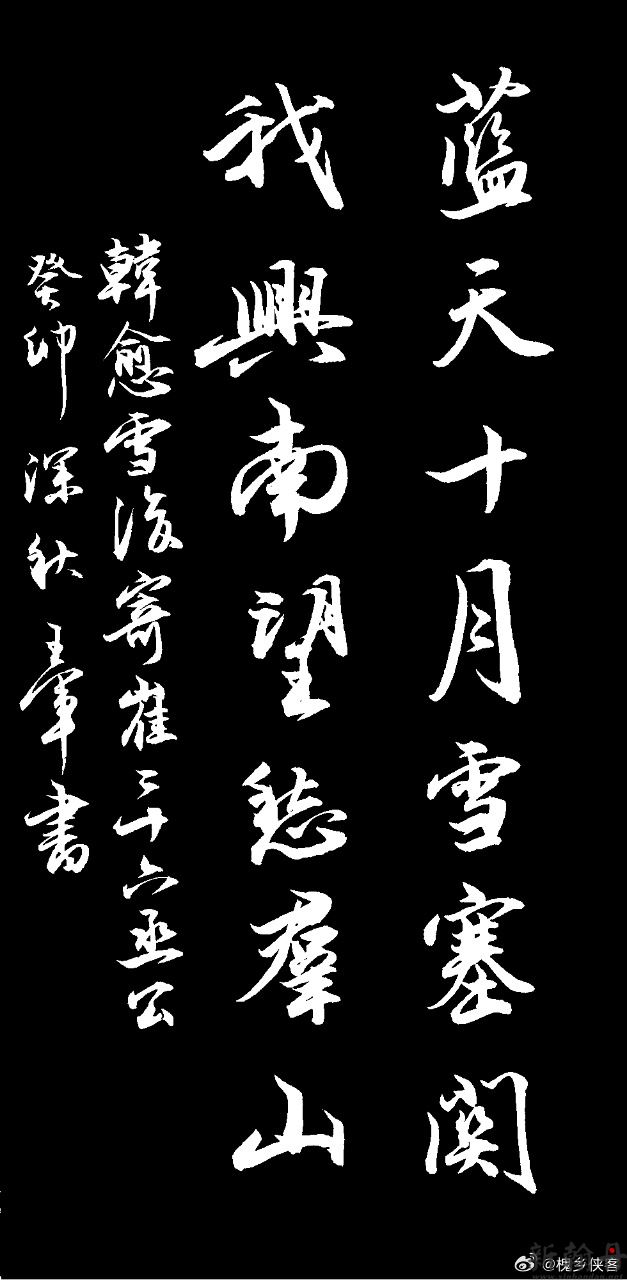 藍天十月雪塞關
我興南望愁羣山
韓愈雪後寄崔二十六丞公
癸卯深秋王軍書
@槐乡侠客